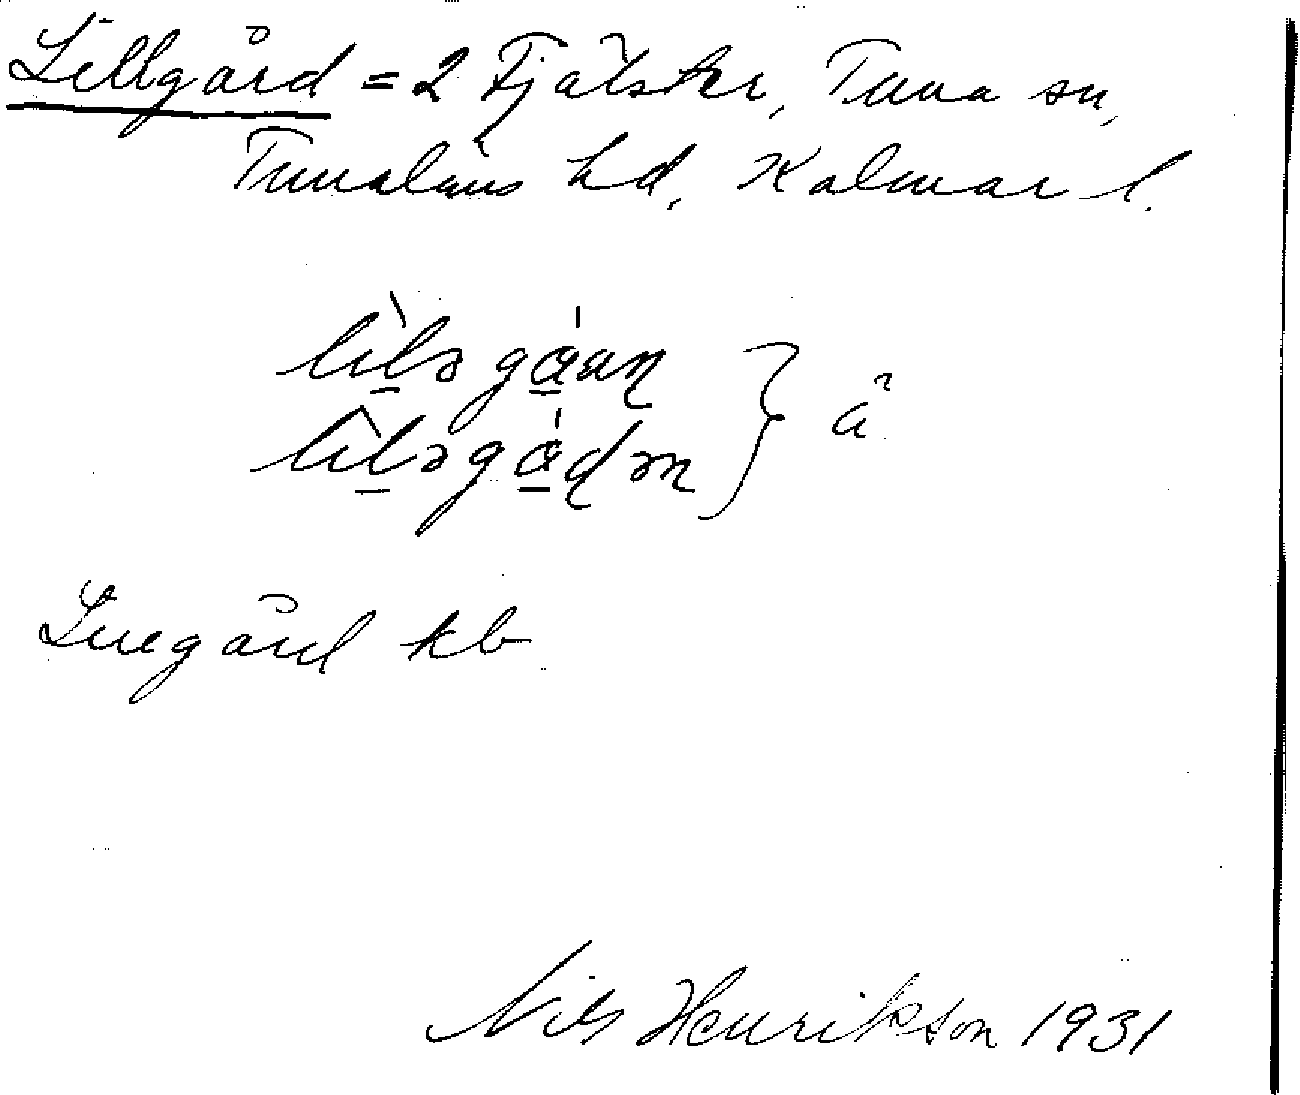 Lillgård = 2 Fjälster, Tuna sn,
Tunaläns hd, Kalmar l.
lìlə gáan
lìləgáɖən } å
Luegård kb
Nils Henrikson 1931